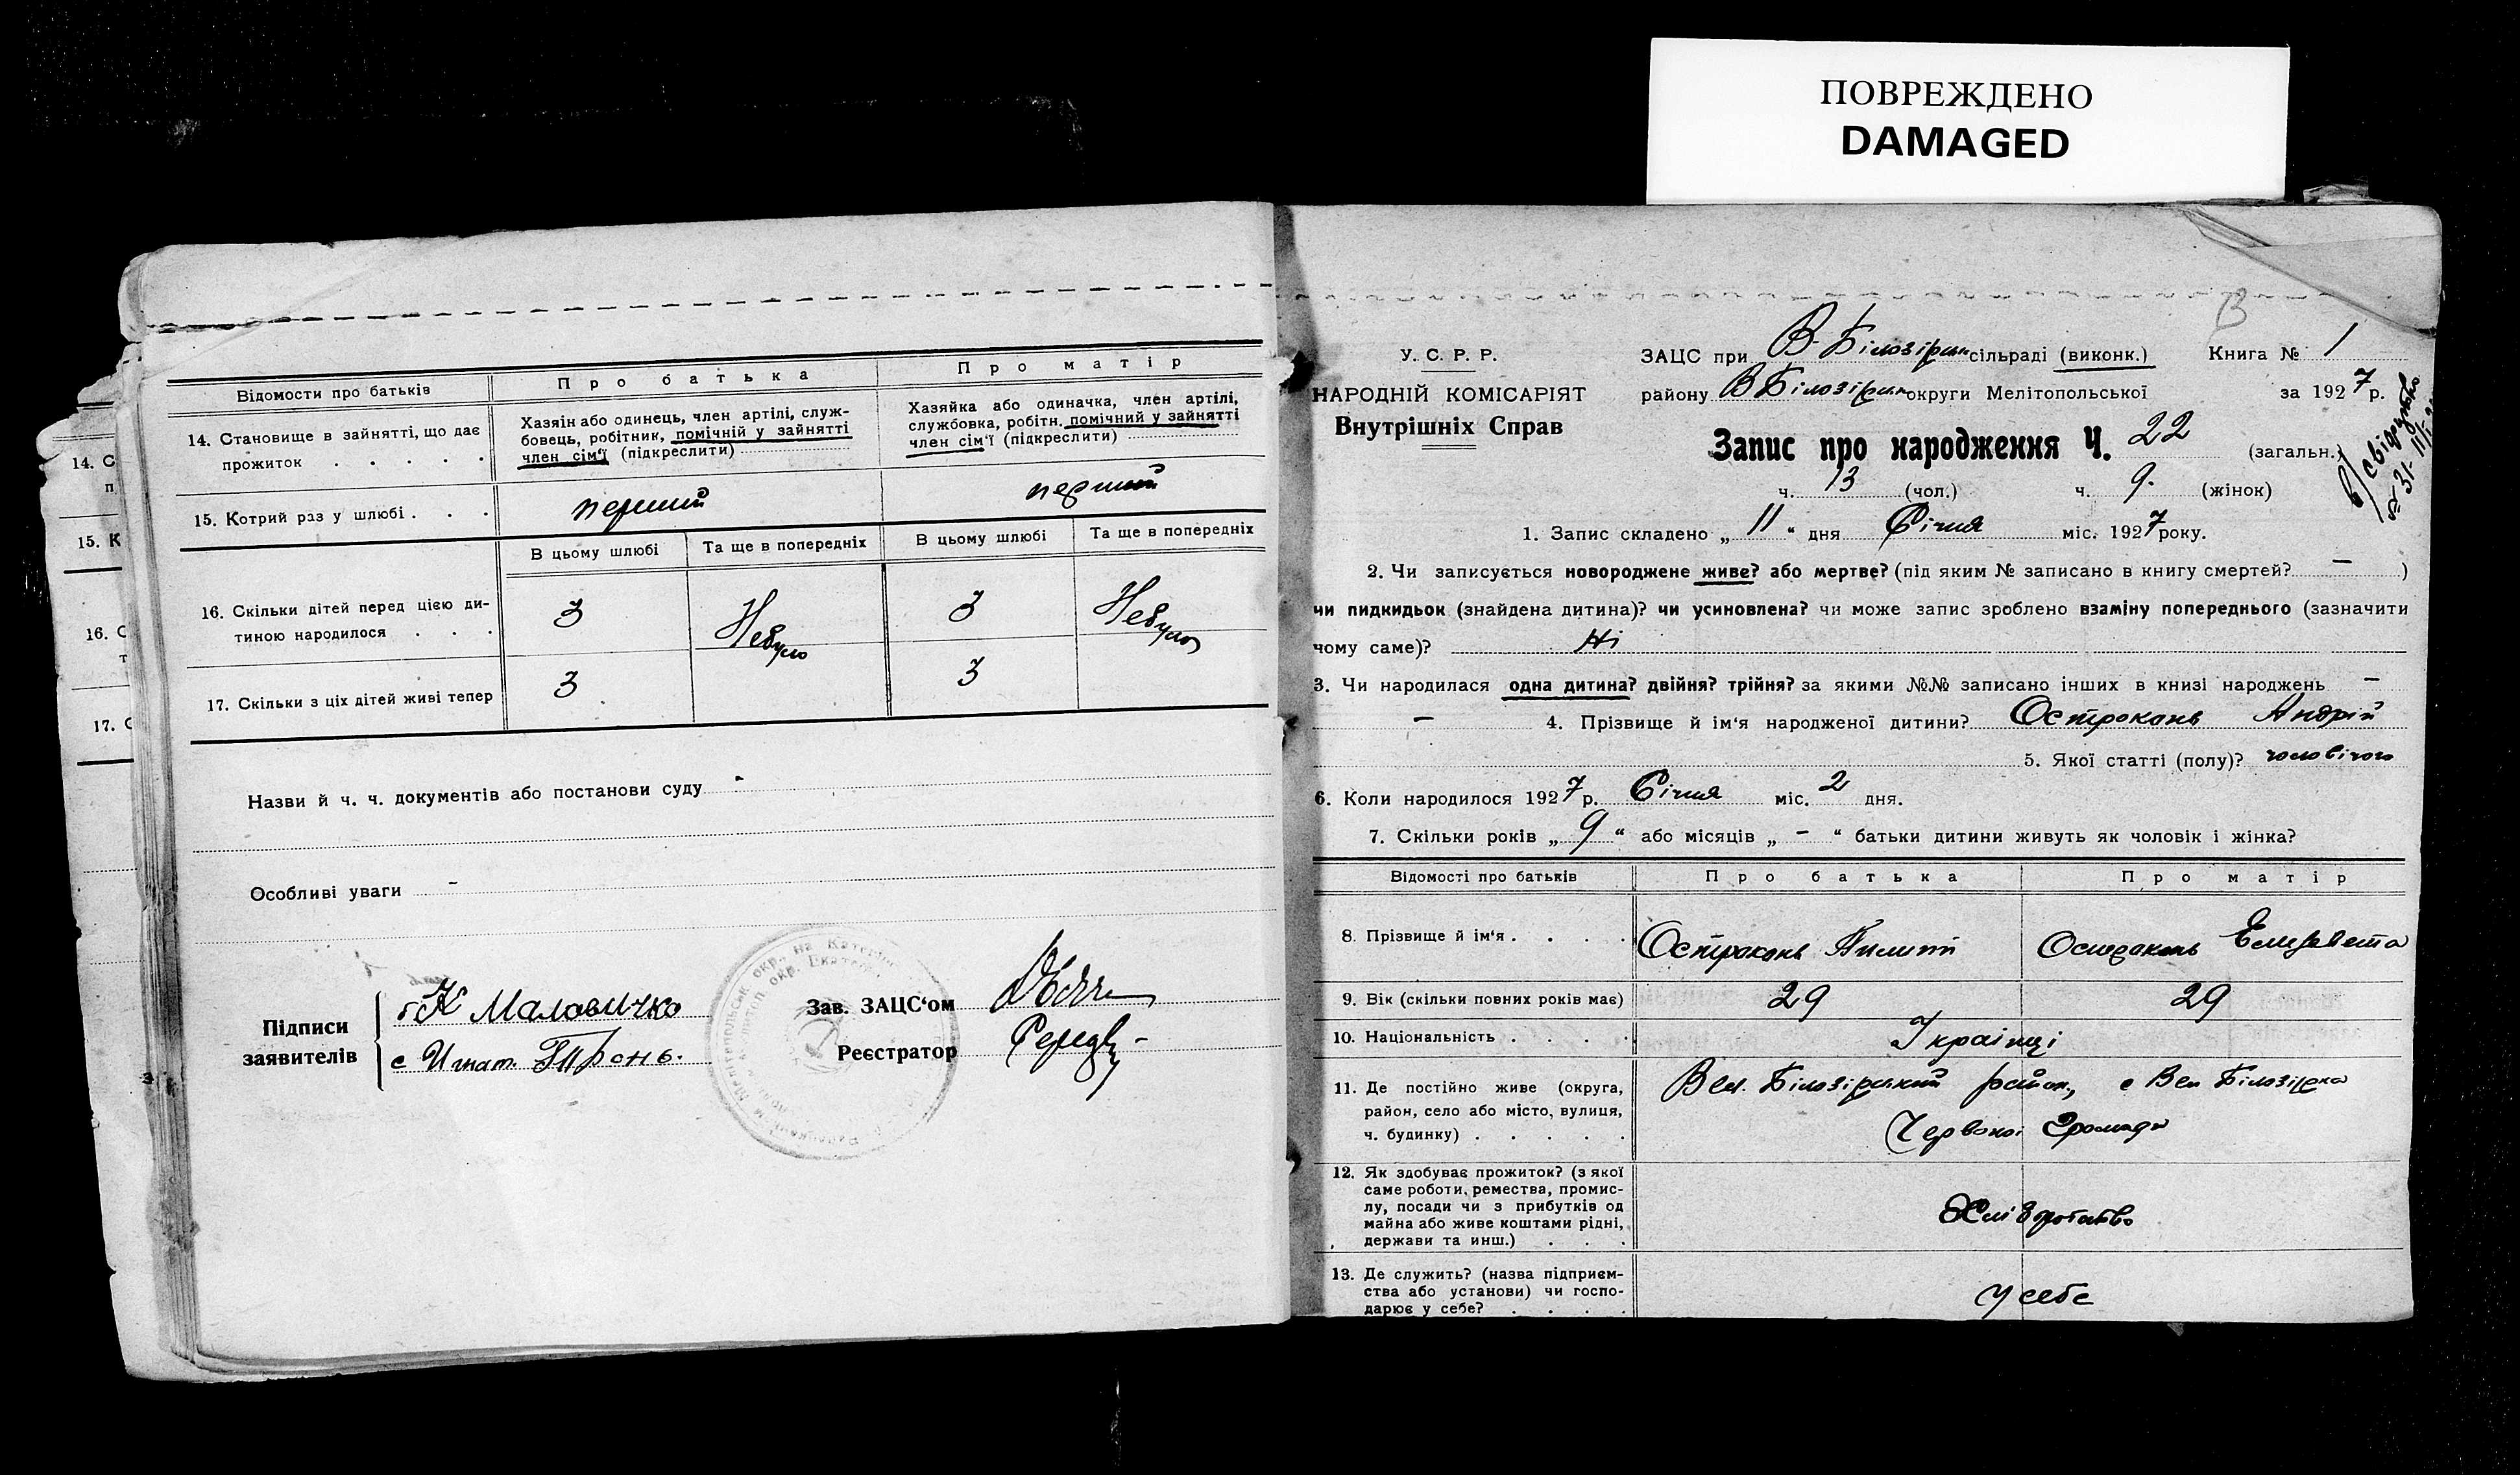 ПОВРЕЖДЕНО
DAMAGED
14. С
п
15. К
16. С
т
17. С
Відомости про батьків
Про батька
Про матір
14. Становище в зайнятті, що дає
прожиток . . . . .
Хазяін або одинець, член артілі, служ-
бовець, робітник, помічній у зайнятті
член сім'ї (підкреслити)
Хазяйка або одиначка, член артілі,
службовка, робітн. помічний у зайнятті
член сім'ї (підкреслити)
15. Котрий раз у шлюбі . . .
перший
перший
В цьому шлюбі
Та ще в попередніх
В цьому шлюбі
Та ще в попередніх
16. Скільки дітей перед цією ди-
тиною народилося . . .
3
Небуло
3
Небуло
17. Скільки з ціх дітей живі тепер
3
3
Назви й ч. ч. документів або постанови суду -
Особливі уваги -
Підписи
заявителів
К Маловичко
с Игнат.
Зав. ЗАЦС'ом
Реєстратор
У. С. Р. Р.
НАРОДНІЙ КОМІСАРІЯТ
Внутрішніх Справ
ЗАЦС при В-Білозірськ сільраді (виконк.) Книга № 1
району В Білозірськ округи Мелітопольської за 1927 р.
Запис про народження Ч. 22 (загальн.)
ч. 13 (чол.) ч. 9. (жінок)
1. Запис складено „11“ дня Січня міс. 1927 року.
2. Чи записується новороджене живе? або мертве? (під яким № записано в книгу смертей? — )
чи пидкидьок (знайдена дитина)? чи усиновлена? чи може запис зроблено взаміну попереднього (зазначити
чому саме)? Ні
3. Чи народилася одна дитина? двійня? трійня? за якими №№ записано інших в книзі народжень —
— 4. Прізвище й ім'я народженої дитини? Остроконь Андрій
5. Якої статті (полу)? чоловічого
6. Коли народилося 1927 р. Січня міс. 2 дня.
7. Скільки років „9“ або місяців „-“ батьки дитини живуть як чоловік і жінка?
Відомості про батьків
Про батька
Про матір
8. Прізвище й ім'я . . . .
Остроконь Пилип
Остроконь Елизавета
9. Вік (скільки повних років має)
29
29
10. Національность . . . . .
Українці
11. Де постійно живе (округа,
район, село або місто, вулиця,
ч. будинку) . . . . .
Вел. Білозірський район, с Вел Білозірка
Червоної Громади
12. Як здобуває прожиток? (з якої
саме роботи, ремества, промис-
лу, посади чи з прибутків од
майна або живе коштами рідні,
держави та инш.) . . .
Хліборобство
13. Де служить? (назва підприєм-
ства або установи) чи госпо-
дарює у себе? . . . .
у себе